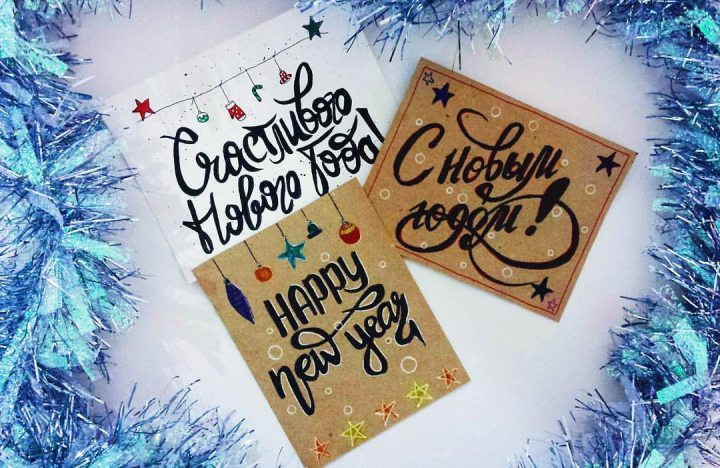 Счастливого
Нового Года!
С новым
годом!
HAPPY
new year